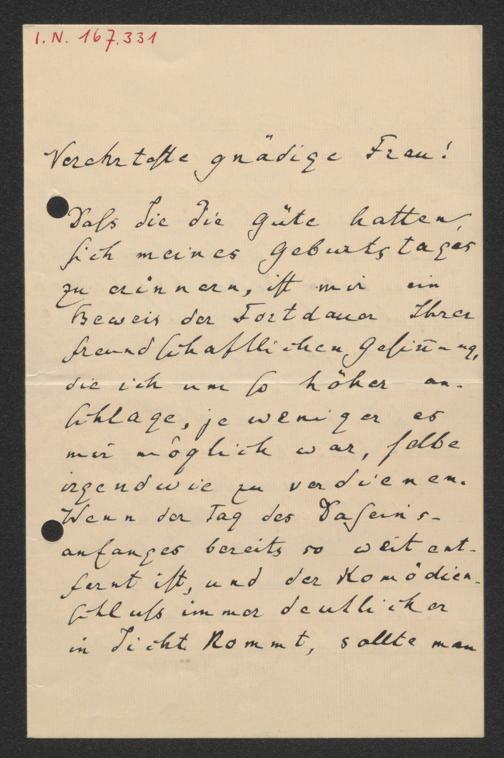 I.N. 167.331
Verehrteste gnädige Frau!
Daß Sie die Güte hatten,
sich meines Geburtstages
zu erinnern, ist mir ein
Beweis der Fortdauer Ihrer
freundschaftlichen Gesinnung,
die ich um so höher an-
schlage, je weniger es
mir möglich war, selbe
irgendwie zu verdienen.
Wenn der Tag des Daseins-
anfanges bereits so weit ent-
fernt ist, und der Komödien-
schluß immer deutlicher
in Sicht kommt, sollte man